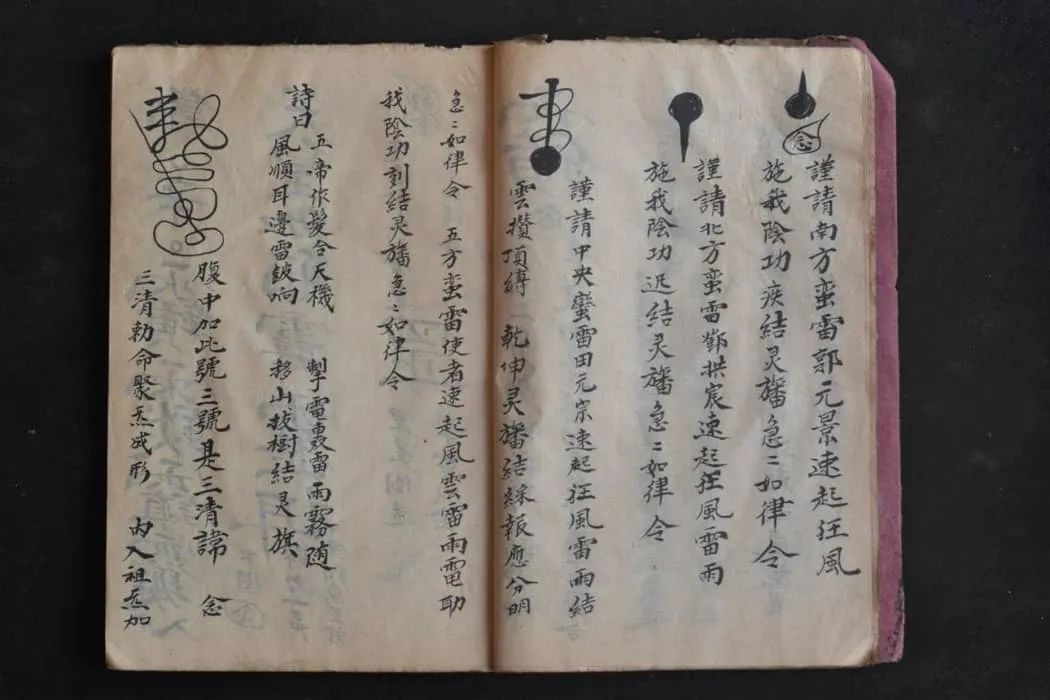 念
謹請南方蛮雷郭元景速起狂風
施我陰功疾結灵旛急二如律令
謹請北方蛮雷鄧拱宸速起狂風雷雨
施我陰功迟結灵旛急二如律令
謹請中央蠻雷田元宗速起狂風雷雨結
雲攢頂縛 乾坤灵旛結綵報應分明
急二如律令 五方蛮雷使者速起風雲雷雨電助
我陰功刻結灵旛急二如律令
詩曰
五帝作髮合天機 掣電轟雷雨霧随
風順耳邊雷鼓响 移山拔樹結灵旗
腹中加此號三號是三清諱 念
三清勅命聚炁成形 内入祖炁加